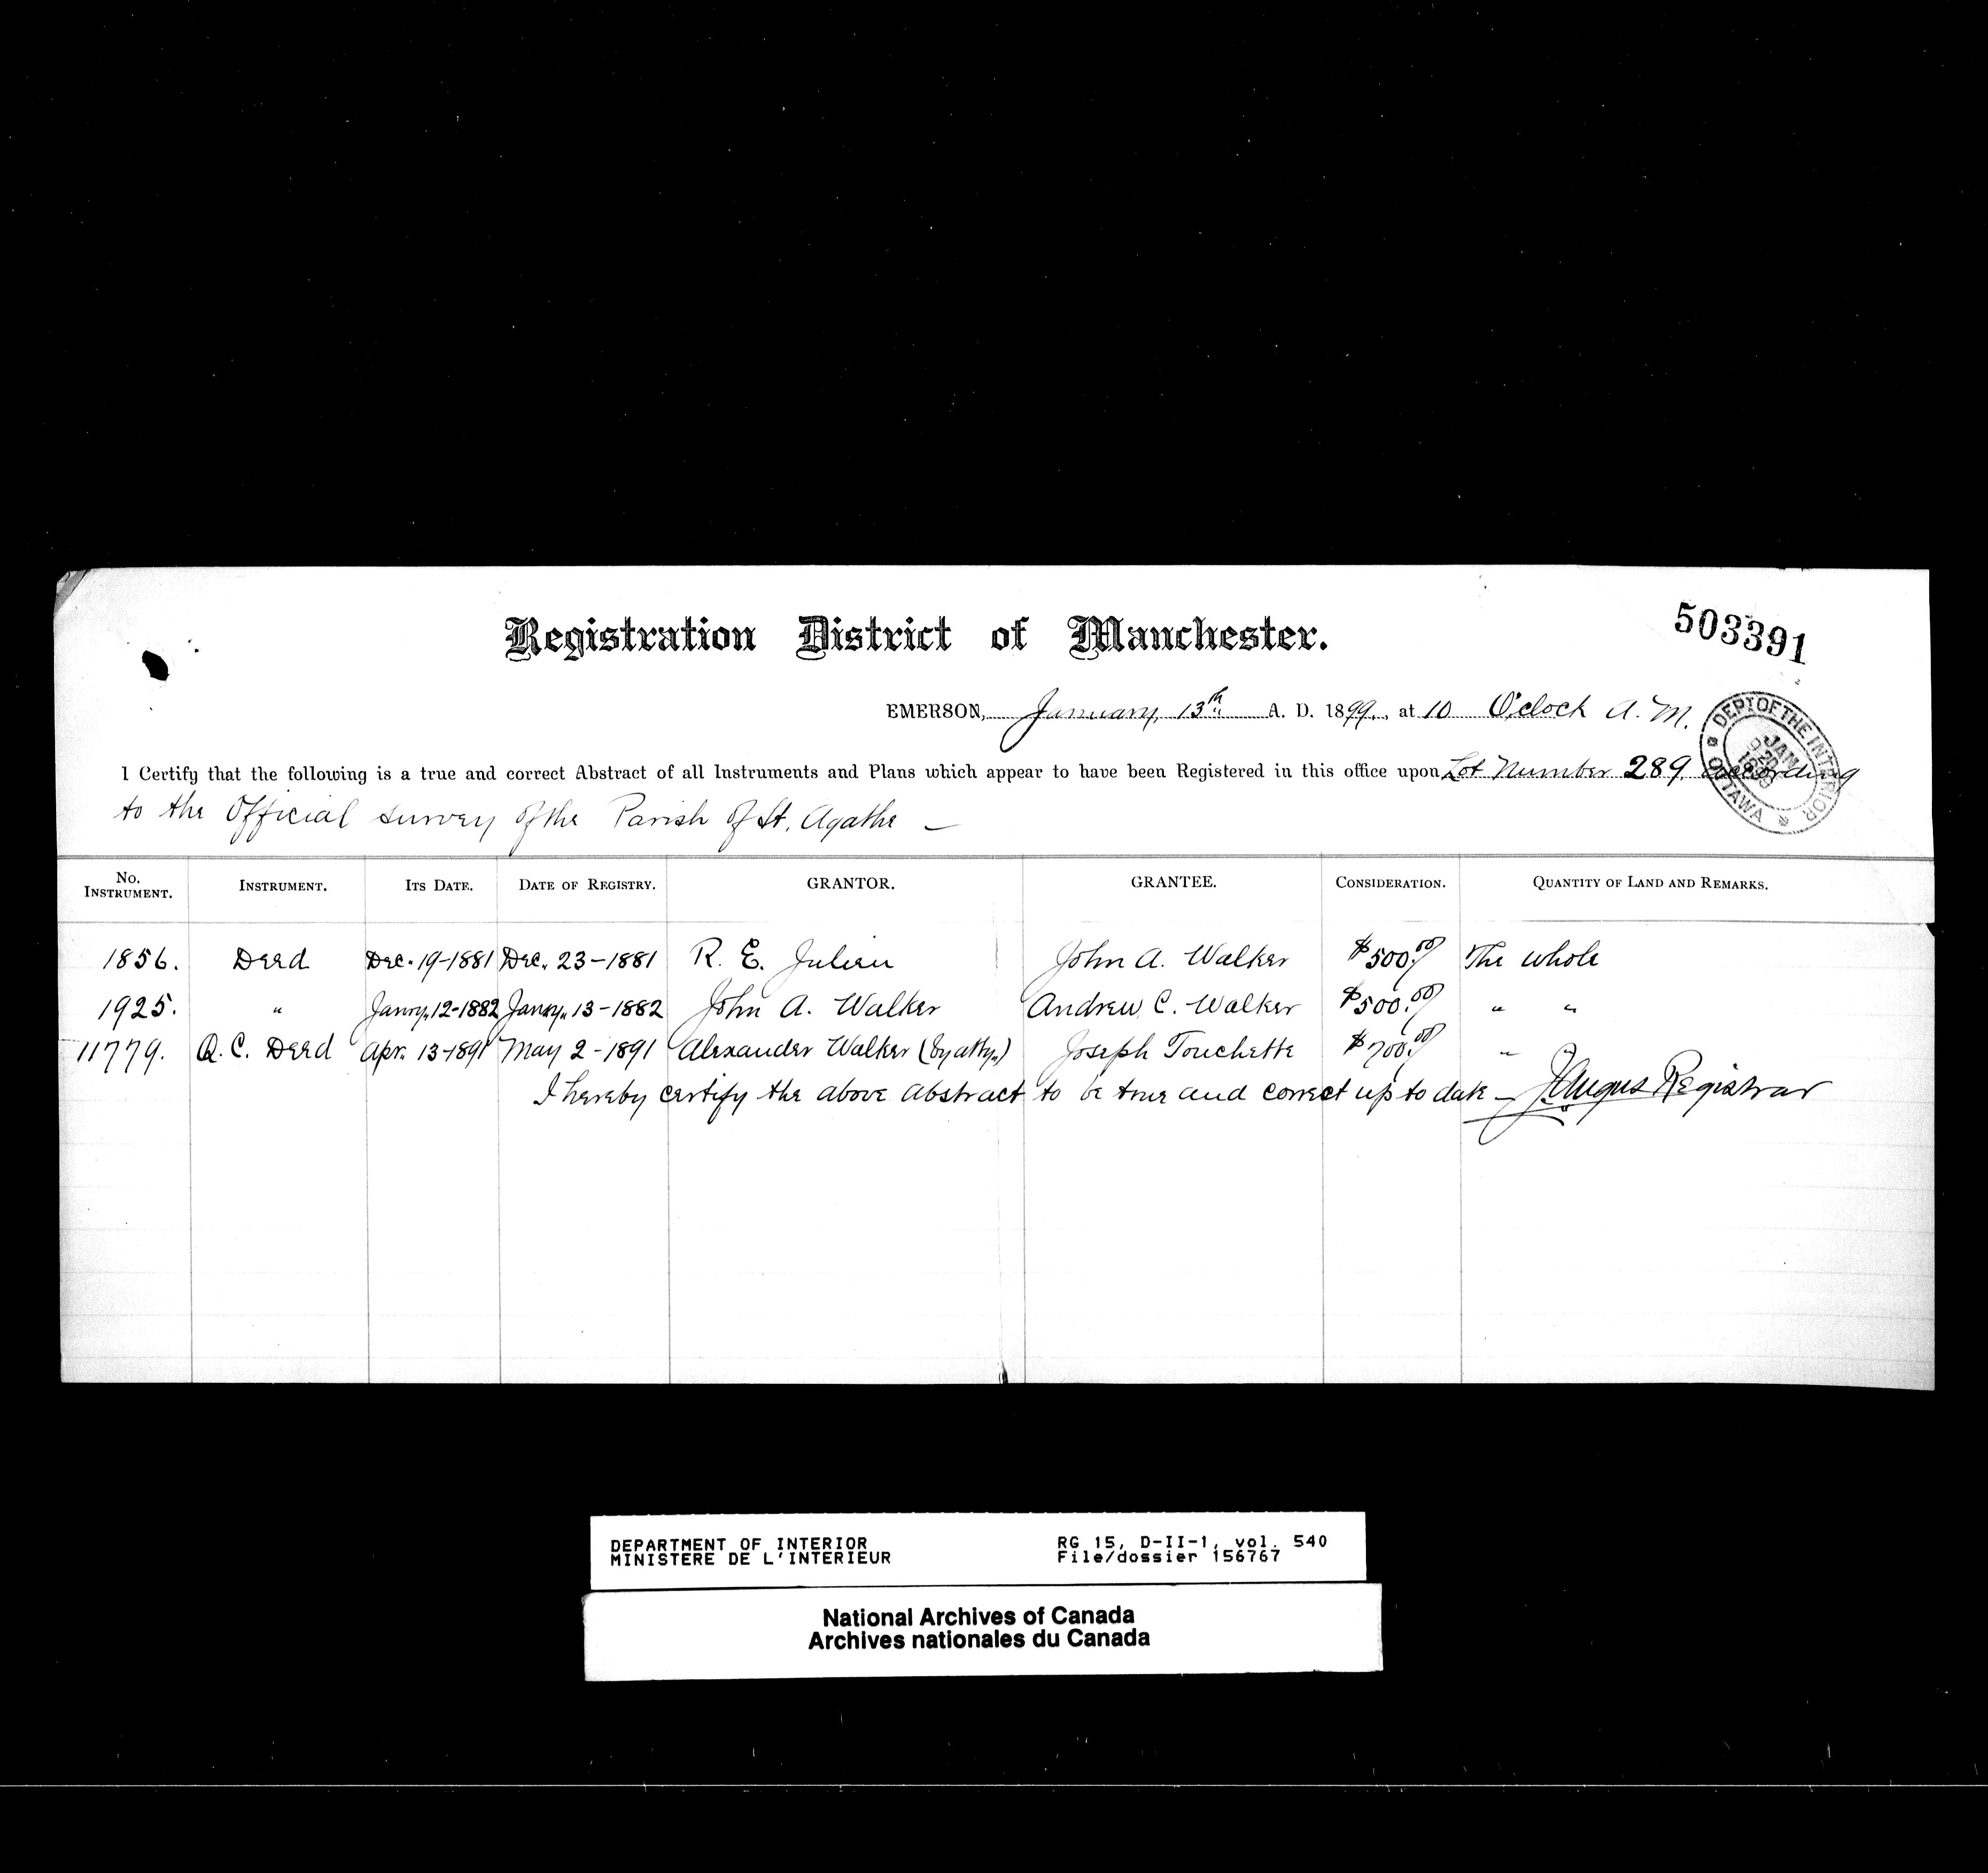 Registration District of Manchester.
503391
EMERSON, January, 13th A. D. 1899., at 10 O'clock A. M.
DEPT OF THE INTERIOR OTTAWA JAN
I Certify that the following is a true and correct Abstract of all Instruments and Plans which appear to have been Registered in this office upon Lot Number 289 according
to the Official survey of the Parish of St. Agathe —
No. INSTRUMENT. INSTRUMENT. ITS DATE. DATE OF REGISTRY. GRANTOR. GRANTEE. CONSIDERATION. QUANTITY OF LAND AND REMARKS.
1856. Deed Dec. 19-1881 Dec. 23-1881 R. E. Julien John A. Walker $500.00 The whole
1925. " Janry. 12-1882 Janry. 13-1882 John A. Walker Andrew C. Walker $500.00 " "
11779. Q. C. Deed Apr. 13-1891 May 2-1891 Alexander Walker (by atty.) Joseph Touchette $700.00 " "
I hereby certify the above abstract to be true and correct up to date — Angus Registrar
DEPARTMENT OF INTERIOR RG 15, D-II-1, vol. 540
MINISTERE DE L'INTERIEUR File/dossier 156767
National Archives of Canada
Archives nationales du Canada